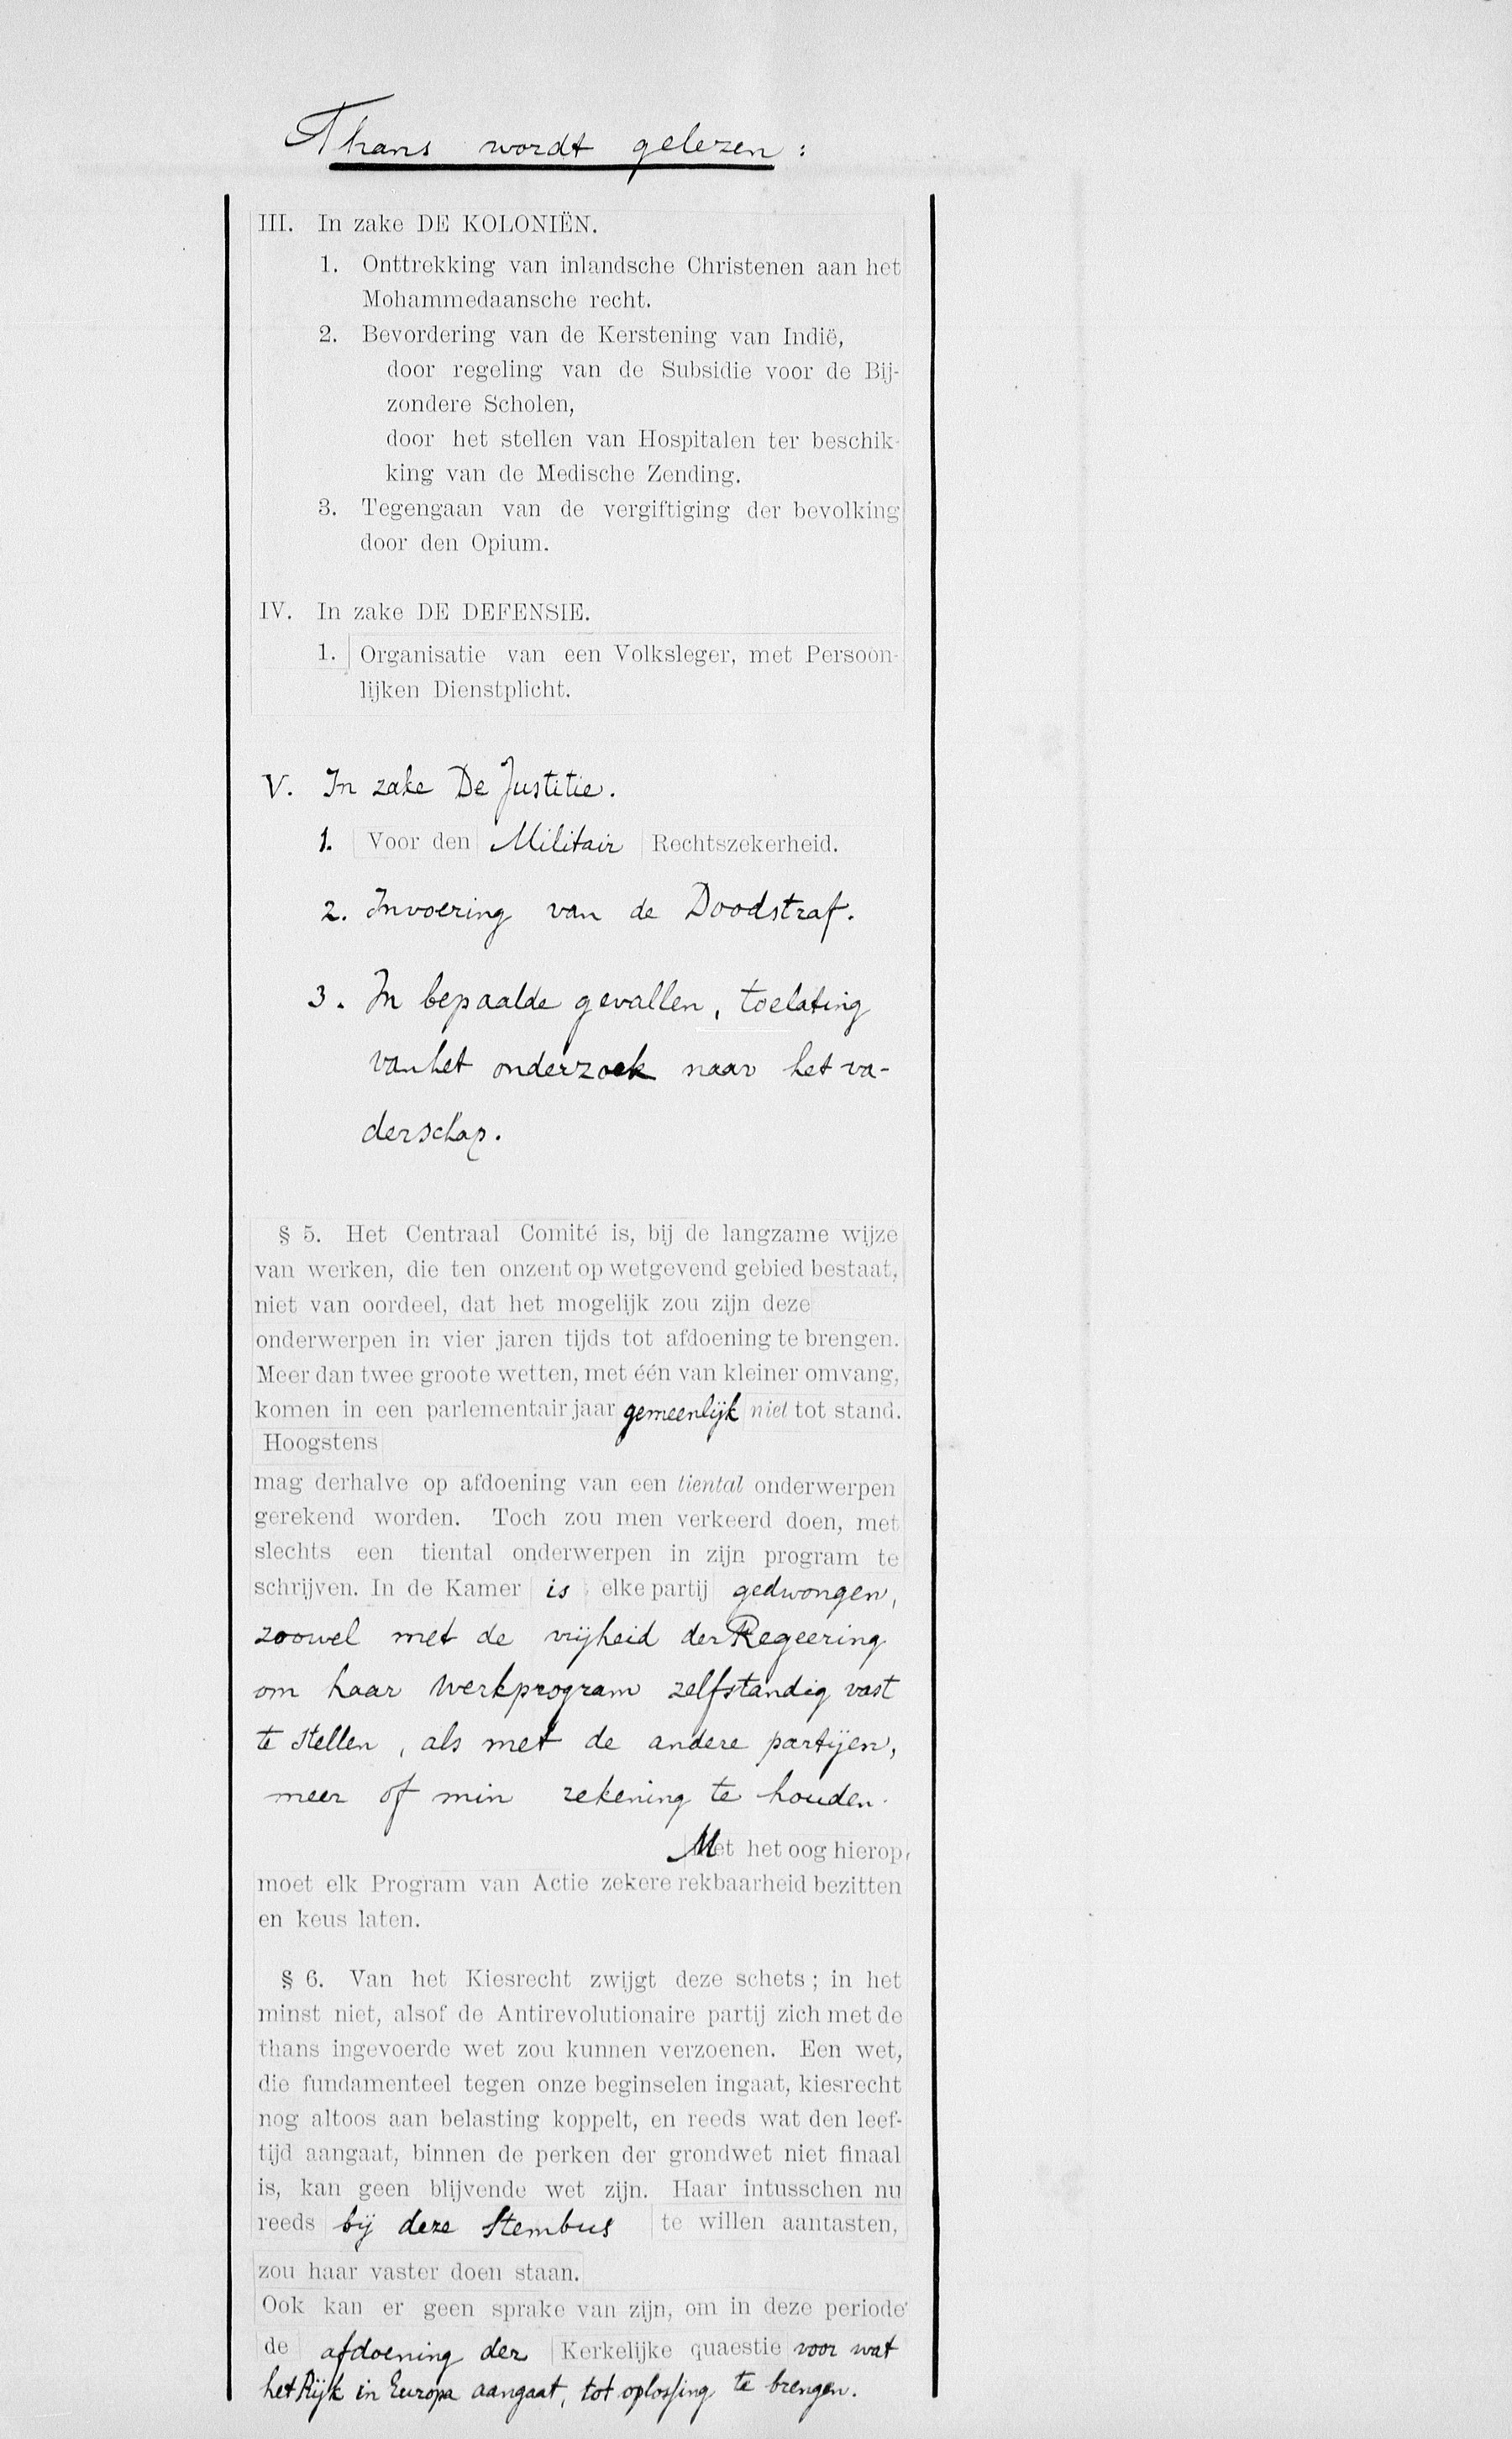 Thans wordt gelezen:
III. In zake DE KOLONIËN.
1. Onttrekking van inlandsche Christenen aan het
Mohammedaansche recht.
2. Bevordering van de Kerstening van Indië,
door regeling van de Subsidie voor de Bij-
zondere Scholen,
door het stellen van Hospitalen ter beschik-
king van de Medische Zending.
3. Tegengaan van de vergiftiging der bevolking
door den Opium.
IV. In zake DE DEFENSIE.
1. Organisatie van een Volksleger, met Persoon-
lijken Dienstplicht.
V. In zake De Justitie.
1. Voor den Militair Rechtszekerheid.
2. Invoering van de Doodstraf.
3. In bepaalde gevallen, toelating
van het onderzoek naar het va-
derschap.
§ 5. Het Centraal Comité is, bij de langzame wijze
van werken, die ten onzent op wetgevend gebied bestaat,
niet van oordeel, dat het mogelijk zou zijn deze
onderwerpen in vier jaren tijds tot afdoening te brengen.
Meer dan twee groote wetten, met één van kleiner omvang,
komen in een parlementair jaar gemeenlijk niet tot stand.
Hoogstens
mag derhalve op afdoening van een tiental onderwerpen
gerekend worden. Toch zou men verkeerd doen, met
slechts een tiental onderwerpen in zijn program te
schrijven. In de Kamer is elke partij gedwongen,
zoowel met de vrijheid der Regeering
om haar werkprogram zelfstandig vast
te stellen, als met de andere partijen,
meer of min rekening te houden.
Met het oog hierop,
moet elk Program van Actie zekere rekbaarheid bezitten
en keus laten.
§ 6. Van het Kiesrecht zwijgt deze schets; in het
minst niet, alsof de Antirevolutionaire partij zich met de
thans ingevoerde wet zou kunnen verzoenen. Een wet,
die fundamenteel tegen onze beginselen ingaat, kiesrecht
nog altoos aan belasting koppelt, en reeds wat den leef-
tijd aangaat, binnen de perken der grondwet niet finaal
is, kan geen blijvende wet zijn. Haar intusschen nu
reeds bij deze Stembus te willen aantasten,
zou haar vaster doen staan.
Ook kan er geen sprake van zijn, om in deze periode
de afdoening der Kerkelijke quaestie voor wat
het Rijk in Europa aangaat, tot oplossing te brengen.